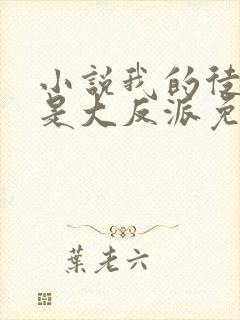 小說我的徒
是大反派免
葉老六